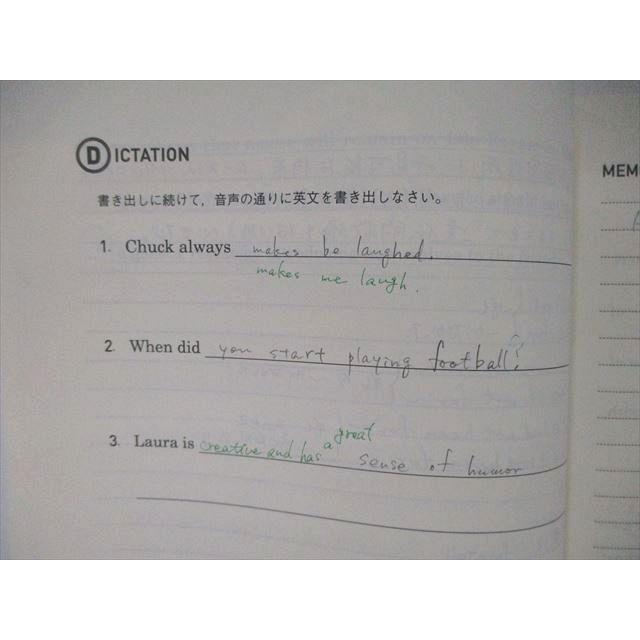 DICTATION
書き出しに続けて，音声の通りに英文を書き出しなさい。
1. Chuck always makes be laughed.
makes me laugh.
2. When did you start playing football?
3. Laura is creative and has a great sense of humor
MEM